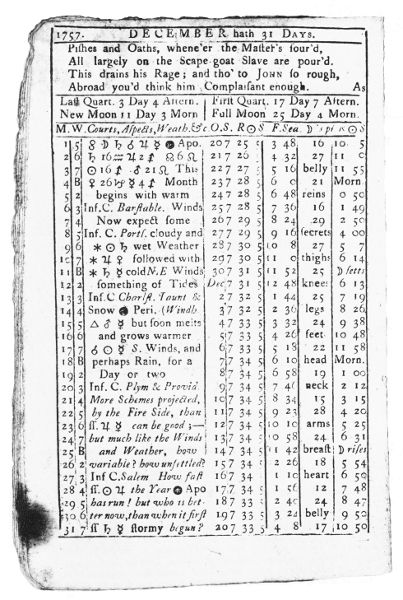 1757. DECEMBER hath 31 Days.
Piſhes and Oaths, whene'er the Maſter's ſour'd,
All largely on the Scape goat Slave are pour'd.
This drains his Rage; and tho' to JOHN ſo rough,
Abroad you'd think him Complaiſant enough. As
Laſt Quart. 3 Day 4 Aftern. Firſt Quart. 17 Day 7 Aftern.
New Moon 11 Day 3 Morn Full Moon 25 Day 4 Morn.
M. W. Courts, Aſpects, Weath. &c O.S. R ☉ S F. Sea D's pl R ☉ S
1 5 Apo. 20 7 25 5 3 48 16 10 5
2 6 21 7 26 5 4 32 27 11 0
3 7 This 22 7 27 5 5 16 belly 11 55
4 B Month 23 7 28 5 6 0 21 Morn.
5 2 begins with warm 24 7 28 5 6 48 reins 0 50
6 3 Inf. C. Barnſtable. Winds 25 7 28 5 7 36 16 1 49
7 4 Now expect ſome 26 7 29 5 8 24 29 2 50
8 5 Inf. C. Portſ. cloudy and 27 7 29 5 9 16 ſecrets 4 00
9 6 wet Weather 28 7 30 5 10 8 27 5 7
10 7 followed with 29 7 30 5 11 0 thighs 6 14
11 B cold N.E Winds 30 7 31 5 11 52 25 D ſetts
12 2 ſomething of Tides Dec 7 31 5 12 48 knees 6 13
13 3 Inf. C Charlſt. Taunt & 2 7 32 5 1 44 25 7 19
14 4 Snow Peri. (Windh 3 7 32 5 2 36 legs 8 26
15 5 but ſoon melts 4 7 33 5 3 32 24 9 38
16 6 and grows warmer 5 7 33 5 4 26 feet 10 48
17 7 S. Winds, and 6 7 33 5 5 18 22 11 58
18 B perhaps Rain, for a 7 7 34 5 6 10 head Morn.
19 2 Day or two 8 7 34 5 6 58 19 1 00
20 3 Inf. C. Plym & Provid. 9 7 34 5 7 46 neck 2 12
21 4 More Schemes projected, 10 7 34 5 8 34 15 3 15
22 5 by the Fire Side, than 11 7 34 5 9 23 28 4 20
23 6 can be good ;— 12 7 34 5 10 10 arms 5 25
24 7 but much like the Winds 13 7 34 5 10 58 24 6 31
25 B and Weather, how 14 7 34 5 11 42 breaſt D riſes
26 2 variable? how unſettled? 15 7 34 5 2 26 18 5 54
27 3 Inf C. Salem How faſt 16 7 34 5 1 10 heart 6 50
28 4 the Year Apo 17 7 34 5 1 56 12 7 48
29 5 has run! but who is bet- 18 7 33 5 2 40 24 8 47
30 6 ter now, than when it firſt 19 7 33 5 3 24 belly 9 50
31 7 ſtormy begun? 20 7 33 5 4 8 17 10 50